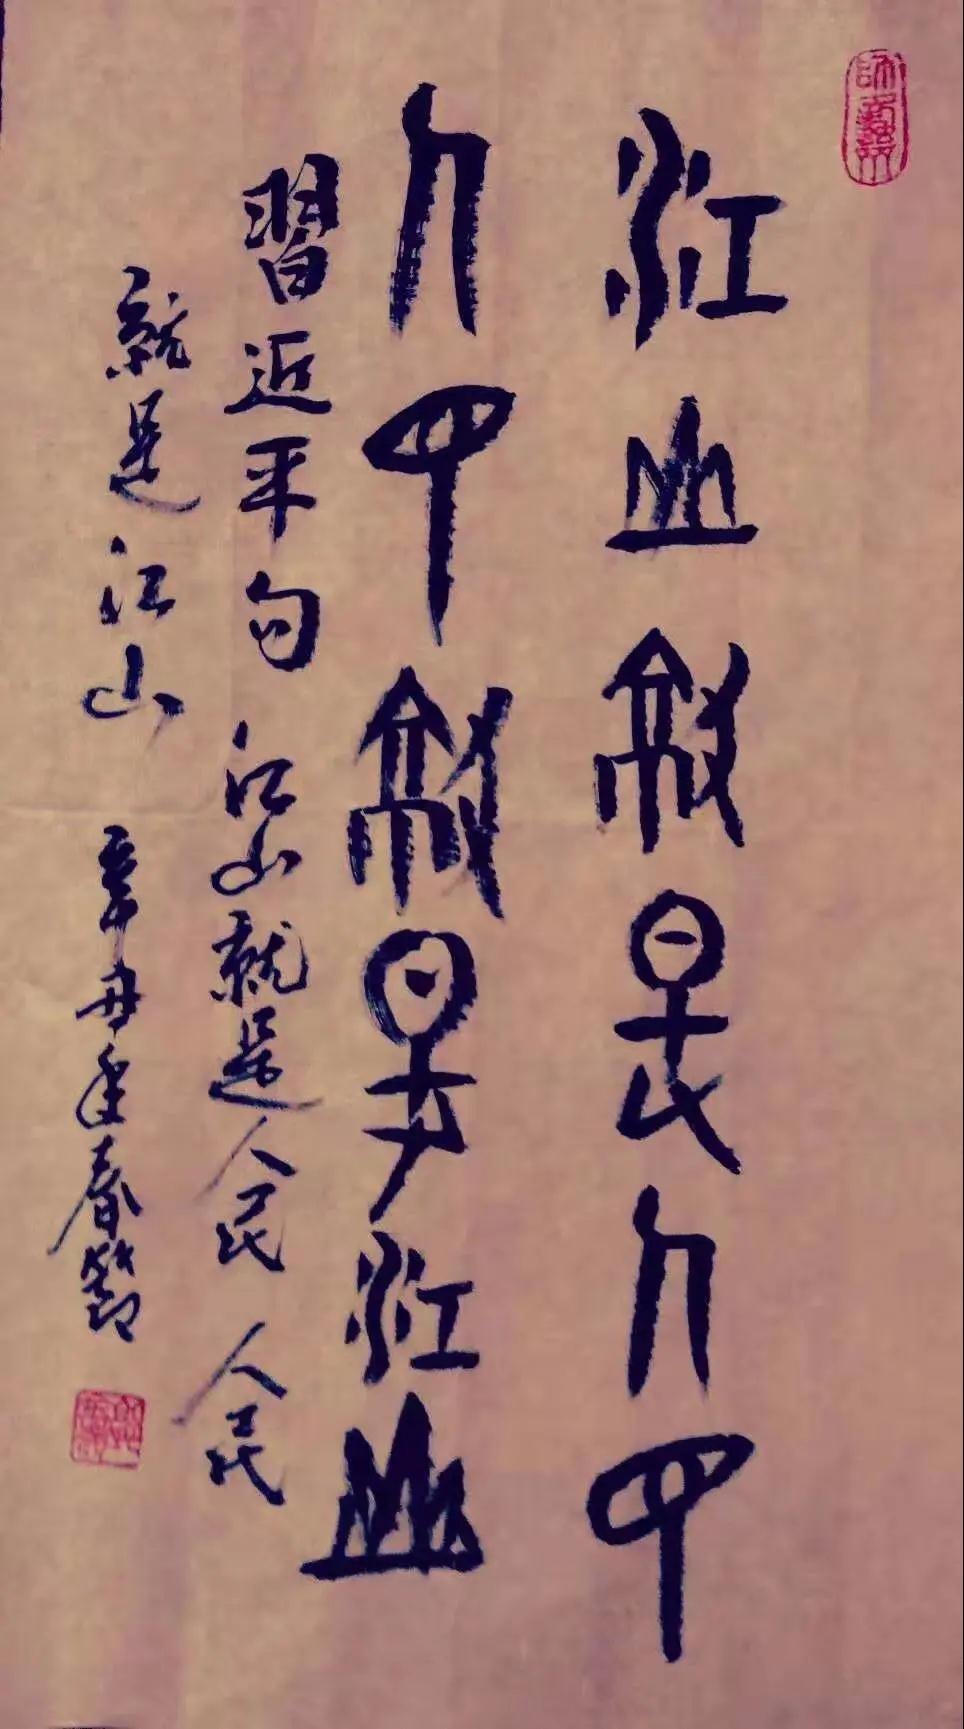 江山就是人民
人民就是江山
習近平句 江山就是人民 人民
就是江山 辛丑年春節